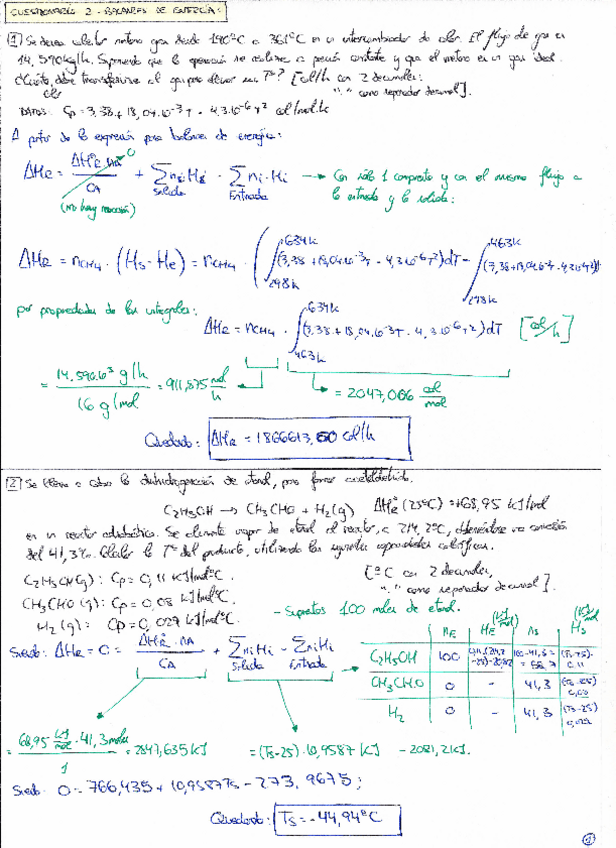 CUESTIONARIO 2 - BALANCES DE ENERGÍA:
1 Se desea calentar metano gas desde 190°C a 361°C en un intercambiador de calor. El flujo de gas es
14,590 kg/h. Suponiendo que la operación se realiza a presión constante y que el metano es un gas ideal.
¿Cuánto debe transferirse al gas para elevar su Tª? [cal/h con 2 decimales;
"," como separador decimal].
DATOS: Cp = 3,38 + 18,04·10⁻³T - 4,3·10⁻⁶T² cal/mol·k
A partir de la expresión para balance de energía:
ΔHR = ΔH°R·nA / CA + Σ ni·Hi - Σ ni·Hi → Con sólo 1 compuesto y con el mismo flujo a
Salida Entrada la entrada y la salida:
(no hay reacción)
ΔHR = nCH4 · (Hs - He) = nCH4 · ( ∫298k 634k (3,38 + 18,04·10⁻³T - 4,3·10⁻⁶T²)dT - ∫298k 463k (3,38 + 18,04·10⁻³T - 4,3·10⁻⁶T²)dT )
por propiedades de las integrales:
ΔHR = nCH4 · ∫463k 634k (3,38 + 18,04·10⁻³T - 4,3·10⁻⁶T²)dT [cal/h]
= 14,590·10³ g/h / 16 g/mol = 911,875 mol/h
= 2047,006 cal/mol
Quedando: ΔHR = 1866613,60 cal/h
2 Se lleva a cabo la deshidrogenación de etanol, para formar acetaldehído.
C2H5OH → CH3CHO + H2(g) ΔH°R (25°C) = +68,95 kJ/mol
en un reactor adiabático. Se alimenta vapor de etanol al reactor, a 214,2°C, obteniéndose una conversión
del 41,3%. Calcular la Tª del producto, utilizando las siguientes capacidades caloríficas.
[°C con 2 decimales,
"," como separador decimal].
C2H5OH(g): Cp = 0,11 kJ/mol°C.
CH3CHO(g): Cp = 0,08 kJ/mol°C.
H2(g): Cp = 0,029 kJ/mol°C.
- Supuestos 100 moles de etanol.
Siendo: ΔHR = 0 = ΔH°R·nA / CA + Σ niHi - Σ niHi
Salida Entrada
nE HE (kJ/mol) ns Hs (kJ/mol)
C2H5OH 100 100-41,3 = 58,7 (Ts-25)· 0,11
CH3CHO 0 - 41,3 (Ts-25)· 0,08
H2 0 - 41,3 (Ts-25)· 0,029
= 68,95 kJ/mol · 41,3 moles / 1 = 2847,635 kJ
= (Ts-25)·10,9587 [kJ] - 2081,2 kJ.
Siendo: 0 = 766,435 + 10,9587Ts - 273,9675;
Quedando: Ts = -44,94°C
1